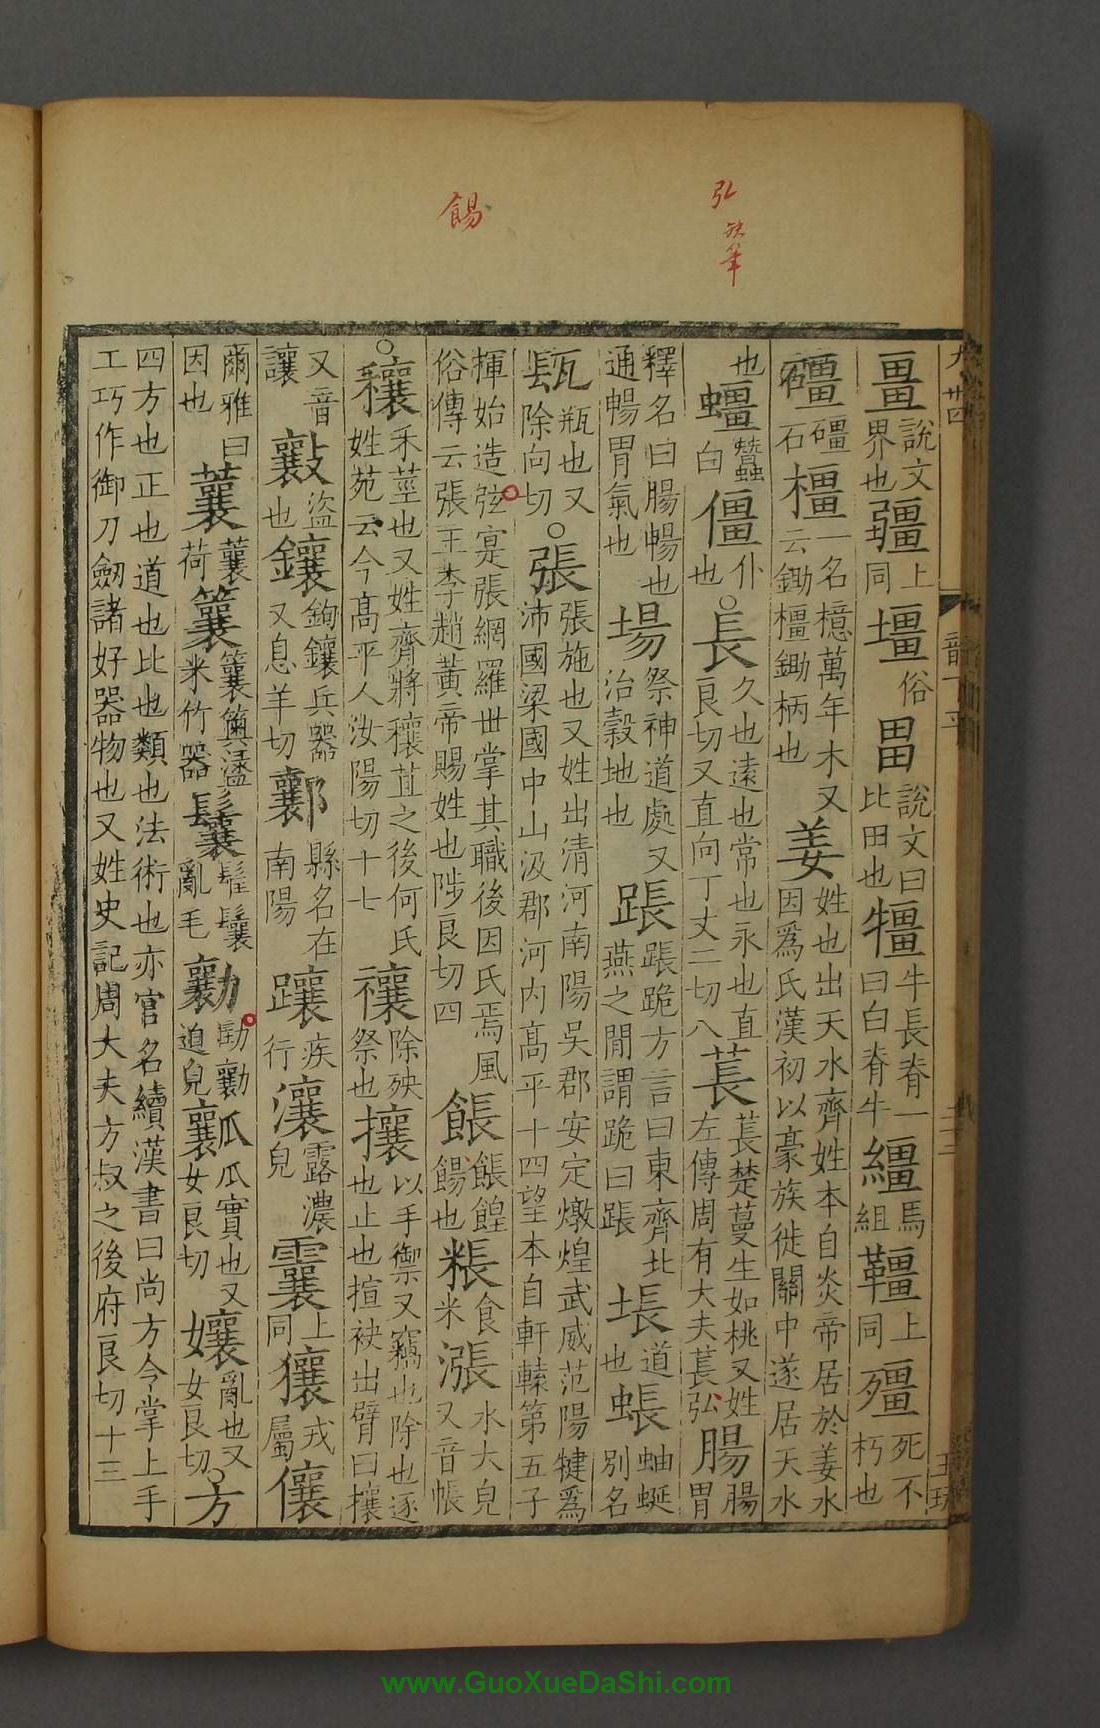 弘
缺筆
餳
畺說文界也疆上同壃俗畕說文曰比田也犅牛長脊一曰白脊牛繮馬組韁上同殭死不朽也
礓礓石橿一名檍萬年木又云鋤橿鋤柄也姜姓也出天水齊姓本自炎帝居於姜水因爲氏漢初以豪族徙關中遂居天水
也蠦蠶白僵仆也○長久也遠也常也永也直良切又直向丁丈二切八萇萇楚蔓生如桃又姓左傳周有大夫萇弘腸腸胃
釋名曰腸暢也通暢胃氣也場祭神道處又治穀地也跟跟跪方言曰東齊北燕之閒謂跪曰跟㙊道也蛝蚰蜒別名
瓺瓶也又除向切○張張施也又姓出清河南陽吳郡安定燉煌武威范陽犍爲沛國梁國中山汲郡河內高平十四望本自軒轅第五子
揮始造弦寔張網羅世掌其職後因氏焉風俗傳云張王李趙黃帝賜姓也陟良切四餦餦餭餳也粻食米漲水大皃又音帳
○穰禾莖也又姓齊將穰苴之後何氏姓苑云今高平人汝陽切十七禳除殃祭也攘以手禦又竊也除也逐也止也揎袂出臂曰攘
又音讓㪢盜也鑲鉤鑲兵器又息羊切鄴縣名在南陽躟疾行瀼露濃皃䨲上同獽戎屬儴
爾雅曰因也蘘蘘荷簔簔籅盪米竹器鬤鬇鬤亂毛勷劻勷迫皃瓤瓜實也又女良切孃亂也又女良切○方
四方也正也道也比也類也法術也亦官名續漢書曰尚方今掌上手工巧作御刀劒諸好器物也又姓史記周大夫方叔之後府良切十三
韻下平
王玩
www.GuoXueDaShi.com